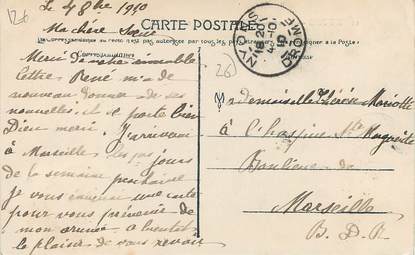 126
Le 4 8bre 1910
Ma chère Sœur
CARTE POSTALE
La Correspondance au recto n'est pas autorisée par tous les pays étrangers
à la Poste.
Correspondance
Merci de votre aimable
lettre, René m'a de
nouveau donner de ses
nouvelles, il se porte bien
Dieu merci. J'arriverai
à Marseille les jours
de la semaine prochaine
je vous enverrai une carte
pour vous prévenir de
mon arrivée a bientôt
le plaisir de vous revoir
NYONS
18 20
4 -10
10
DROME
26
Mademoiselle Thérèse Mariotte
à l'hospice Ste Marguerite
Banlieue de
Marseille
B. D. R